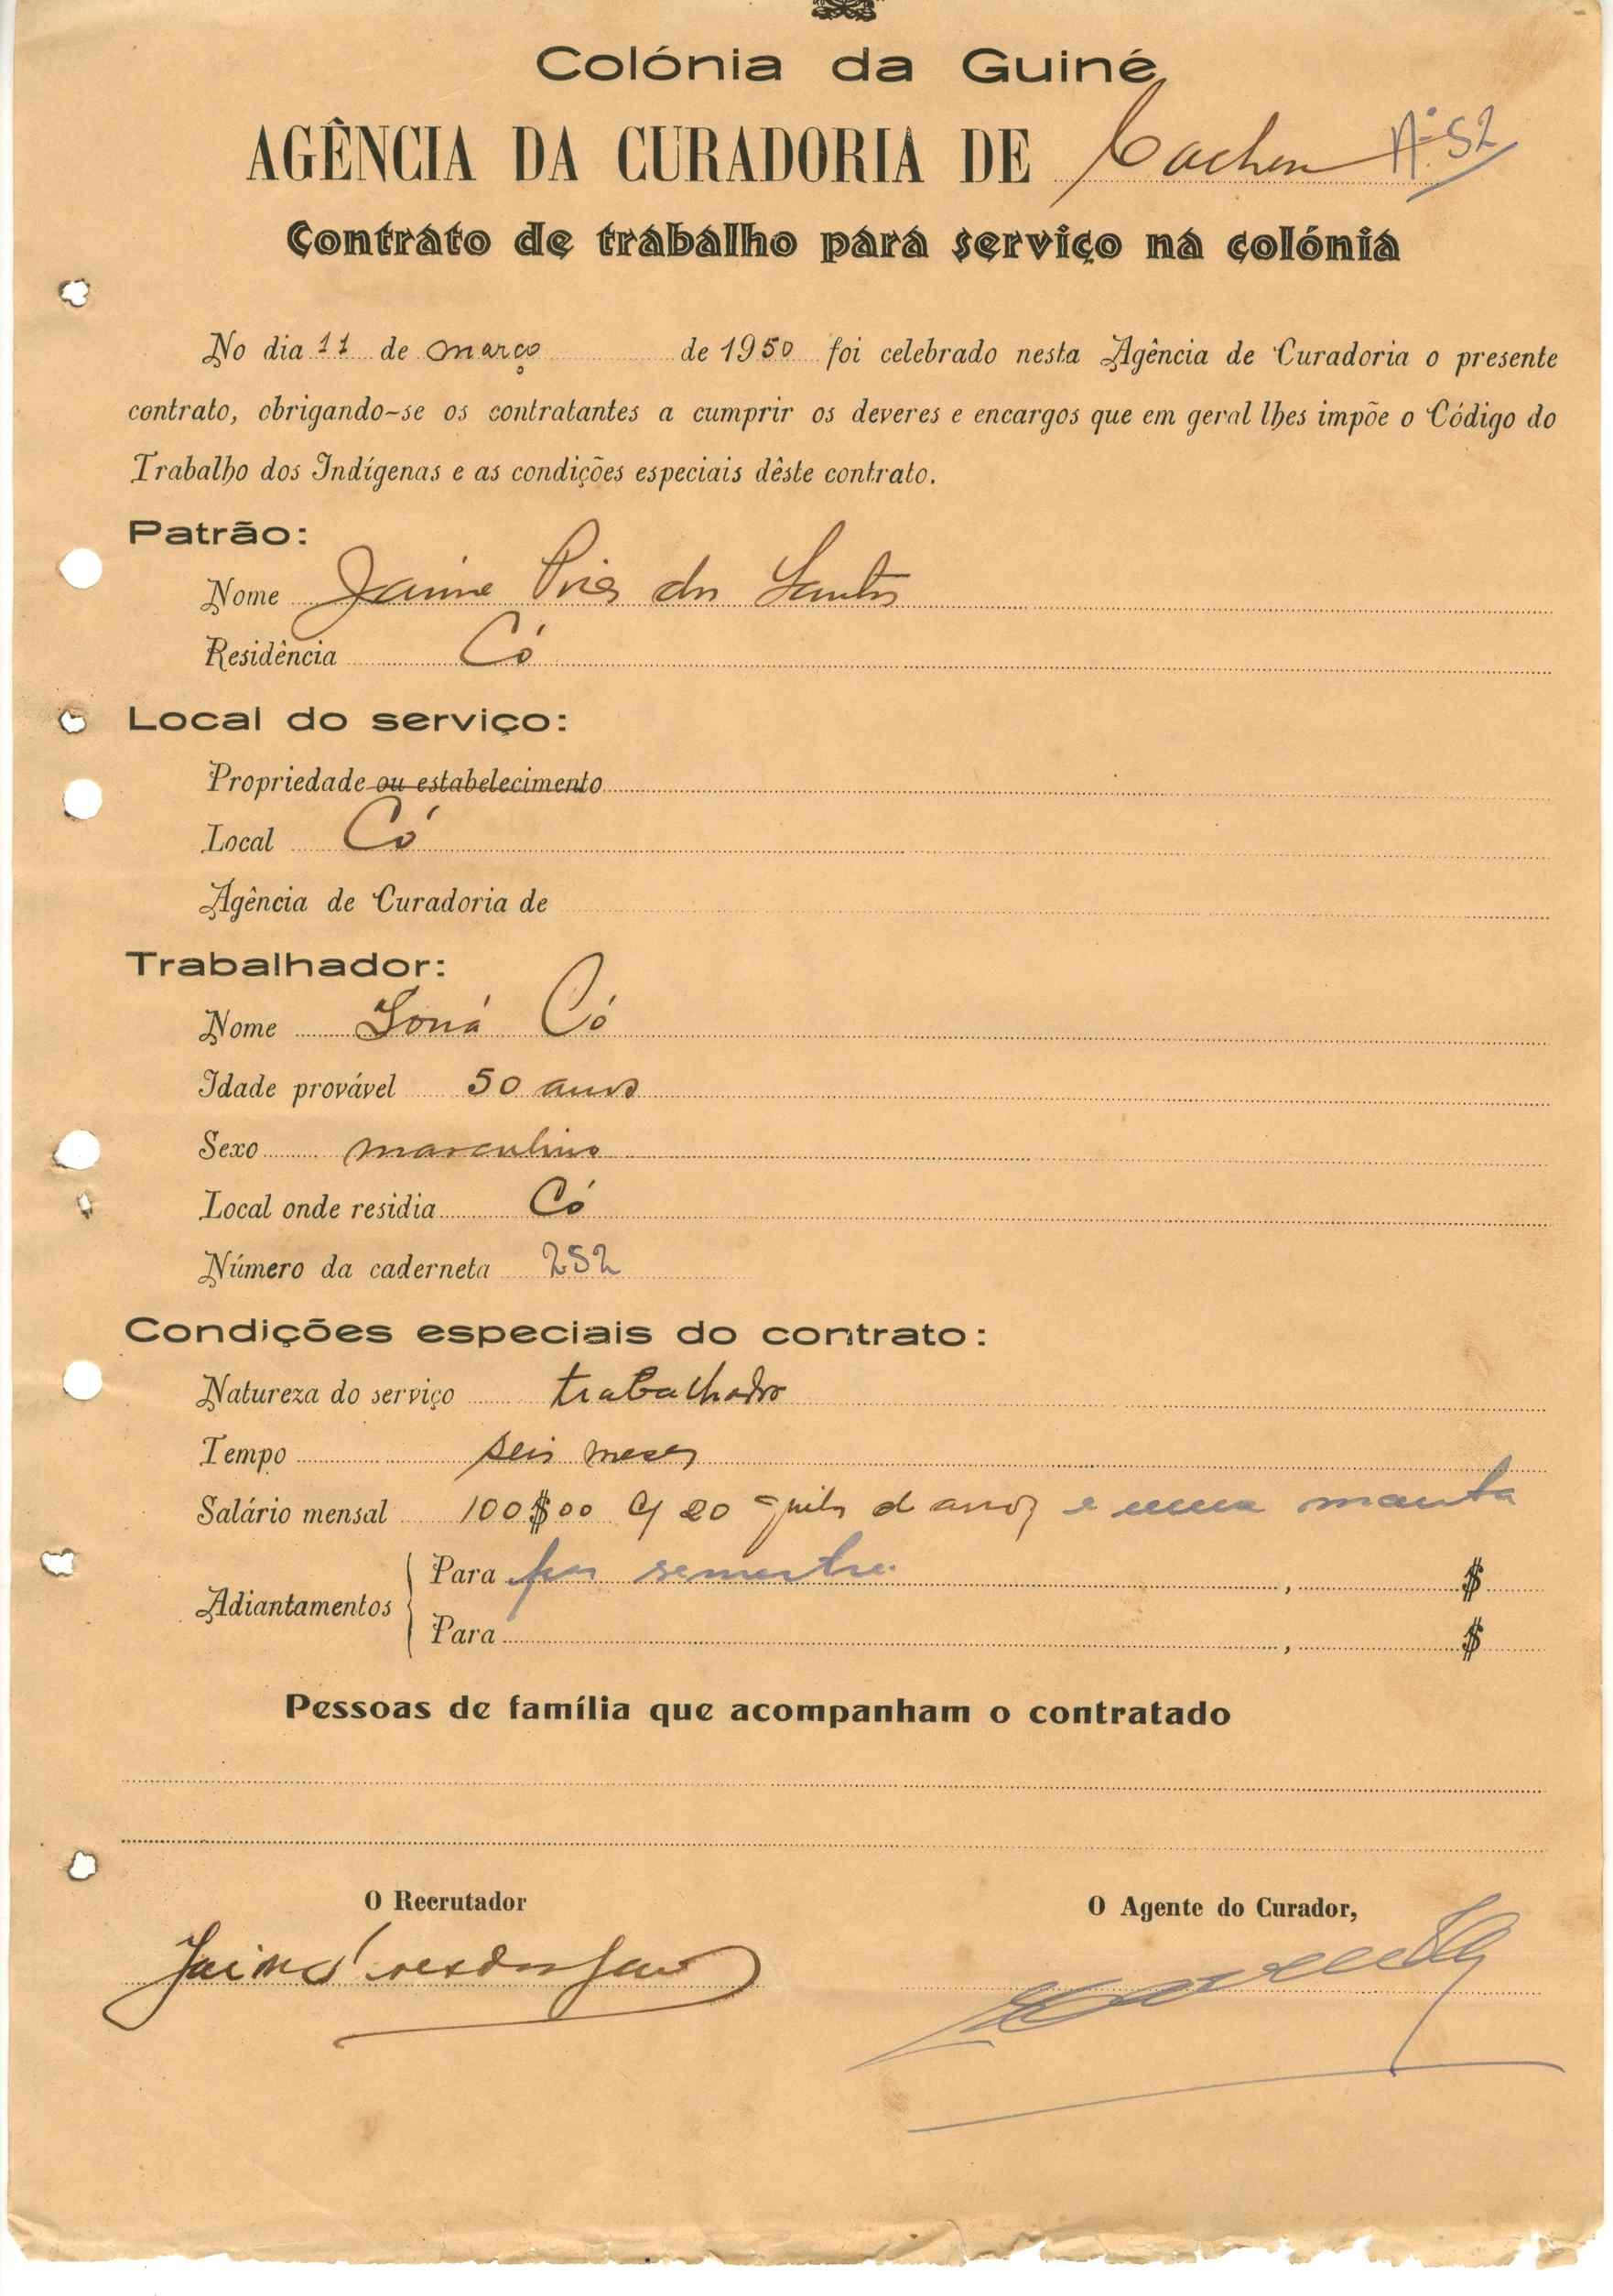 Colónia da Guiné
AGÊNCIA DA CURADORIA DE Cacheu Nº 52
Contrato de trabalho para serviço na colónia
No dia 11 de março de 1950 foi celebrado nesta Agência de Curadoria o presente
contrato, obrigando-se os contratantes a cumprir os deveres e encargos que em geral lhes impõe o Código do
Trabalho dos Indígenas e as condições especiais dêste contrato.
Patrão:
Nome Jaime Pires dos Santos
Residência Có
Local do serviço:
Propriedade ou estabelecimento
Local Có
Agência de Curadoria de
Trabalhador:
Nome Có
Idade provável 50 anos
Sexo masculino
Local onde residia Có
Número da caderneta 252
Condições especiais do contrato:
Natureza do serviço trabalhador
Tempo seis meses
Salário mensal 100$00 c/ 20 quilos d arroz e uma manta
Adiantamentos
Para por semestre. , $
Para , $
Pessoas de família que acompanham o contratado
O Recrutador
O Agente do Curador,
Jaime Pires dos Santos